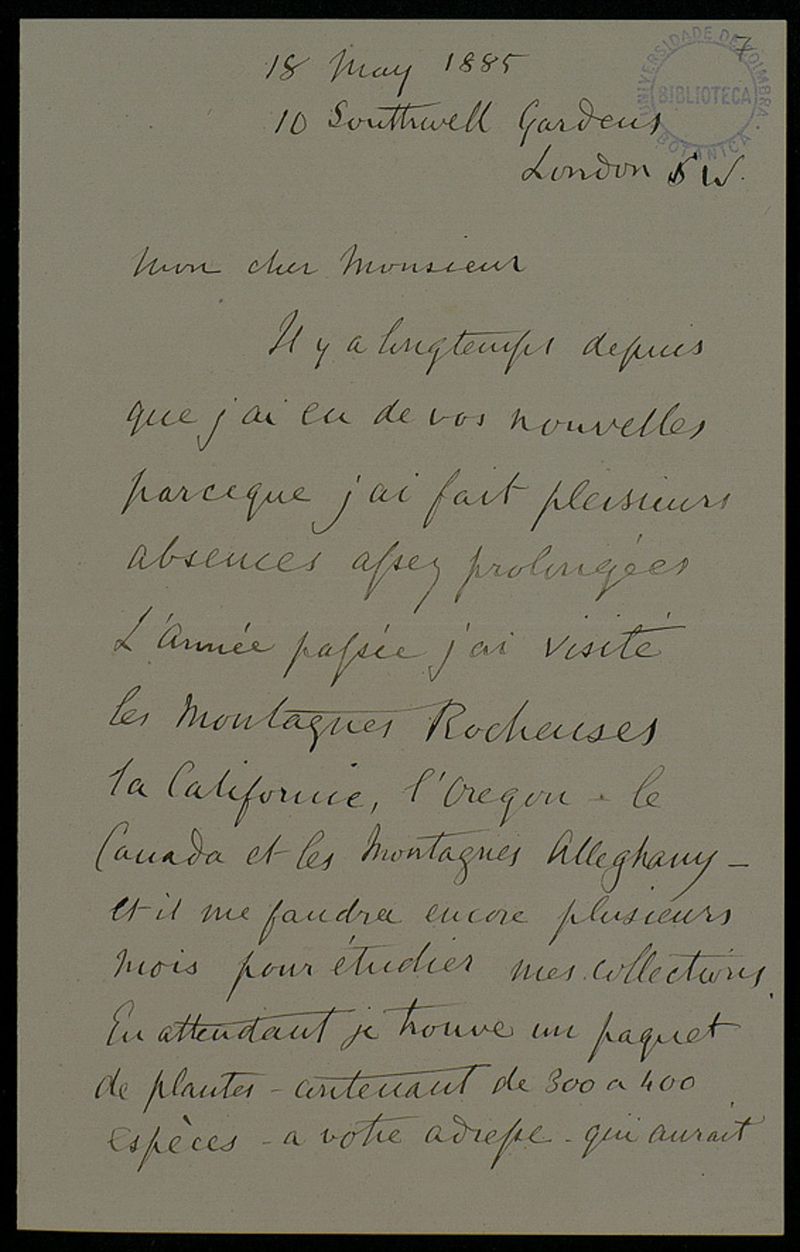 7
UNIVERSIDADE DE COIMBRA
BIBLIOTECA
BOTANICA
18 May 1885
10 Southwell Gardens
London S W.
Mon cher Monsieur
Il y a longtemps depuis
que j'ai eu de vos nouvelles
parceque j'ai fait plusieurs
absences assez prolongées
L'Année passée j'ai visité
les Montagnes Rocheuses
la Californie, l'Oregon - le
Canada et les Montagnes Alleghany -
et il me faudra encore plusieurs
mois pour étudier mes collections.
En attendant je trouve un paquet
de plantes - contenant de 300 a 400
espèces - a votre adresse - qui aurait